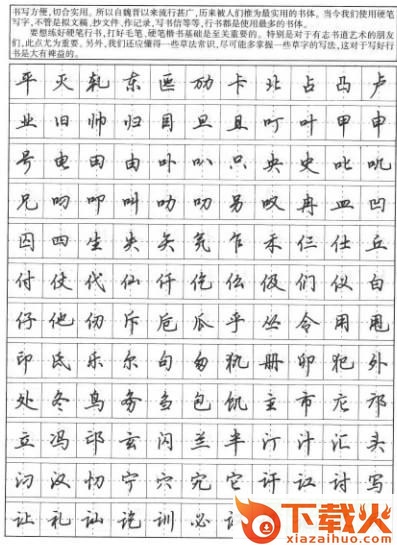 书写方便,切合实用。所以自魏晋以来流行甚广,历来被人们推为最实用的书体。当今我们使用硬笔
写字,不管是拟文稿,抄文件,作记录,写书信等等,行书都是使用最多的书体。
要想练好硬笔行书,打好毛笔,硬笔楷书基础是至关重要的。特别是对于有志书道艺术的朋友
们,此点尤为重要。另外,我们还应懂得一些草法常识,尽可能多掌握一些草字的写法,这对于写好行
书是大有裨益的。
平 灭 轧 东 匝 劢 卡 北 占 凸 卢
业 旧 帅 归 目 旦 且 叮 叶 甲 申
号 电 田 由 卟 叭 只 央 史 叱 叽
兄 叼 叩 叫 叻 叨 另 叹 冉 皿 凹
囚 四 生 失 矢 氕 乍 禾 仨 仕 丘
付 仗 代 仙 仟 仡 仫 伋 们 仪 白
仔 他 仞 斥 卮 瓜 乎 丛 令 用 甩
印 氐 乐 尔 句 匆 犰 册 卯 犯 外
处 冬 鸟 务 刍 包 饥 主 市 庀 邝
立 冯 邙 玄 闪 兰 半 汀 汁 汇 头
汈 汉 忉 宁 穴 宄 它 讦 议 讨 写
让 礼 讪 讫 训 必
下载火
xiazaihuo.com